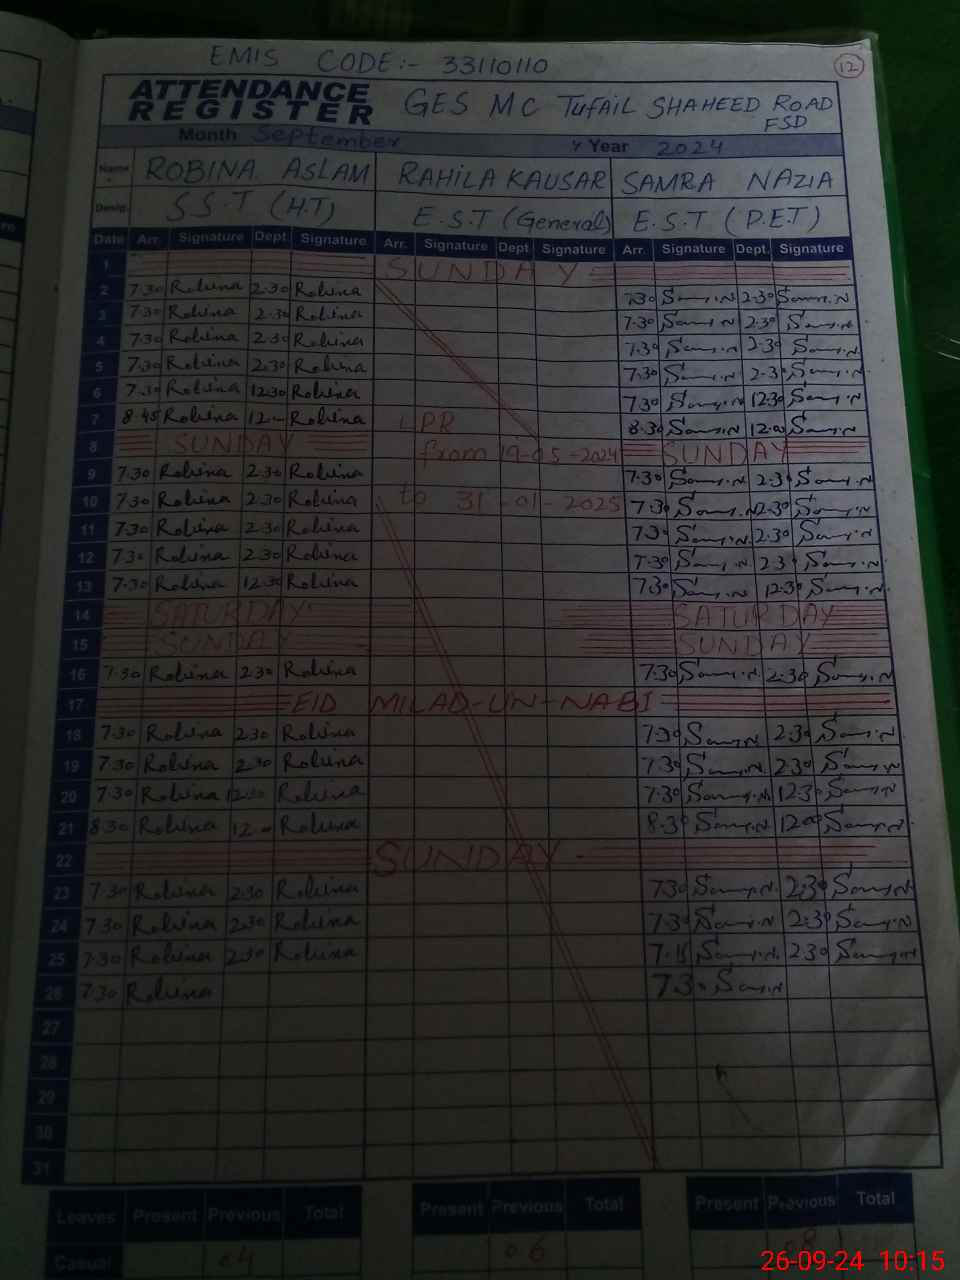 EMIS CODE:- 33110110
12
ATTENDANCE REGISTER GES MC TUFAIL SHAHEED ROAD FSD
Month September Year 2024
Name ROBINA ASLAM RAHILA KAUSAR SAMRA NAZIA
Desig. S.S.T (H.T) E.S.T (General) E.S.T (P.E.T)
Date Arr. Signature Dept. Signature Arr. Signature Dept Signature Arr. Signature Dept. Signature
1 SUNDAY
2 7.30 Robina 2.30 Robina 7.30 Samr.N 2.30 Samr.N
3 7.30 Robina 2.30 Robina 7.30 Samr.N 2.30 Samr.N
4 7.30 Robina 2.30 Robina 7.30 Samr.N 2.30 Samr.N
5 7.30 Robina 2.30 Robina 7.30 Samr.N 2.30 Samr.N
6 7.30 Robina 12.30 Robina 7.30 Samr.N 12.30 Samr.N
7 8.45 Robina 12.- Robina LPR 8.30 Samr.N 12.00 Samr.N
8 SUNDAY from 19-05-2024 SUNDAY
9 7.30 Robina 2.30 Robina 7.30 Samr.N 2.30 Samr.N
10 7.30 Robina 2.30 Robina to 31-01-2025 7.30 Samr.N 2.30 Samr.N
11 7.30 Robina 2.30 Robina 7.30 Samr.N 2.30 Samr.N
12 7.30 Robina 2.30 Robina 7.30 Samr.N 2.30 Samr.N
13 7.30 Robina 12.30 Robina 7.30 Samr.N 12.30 Samr.N
14 SATURDAY SATURDAY
15 SUNDAY SUNDAY
16 7.30 Robina 2.30 Robina 7.30 Samr.N 2.30 Samr.N
17 EID MILAD-UN-NABI
18 7.30 Robina 2.30 Robina 7.30 Samr.N 2.30 Samr.N
19 7.30 Robina 2.30 Robina 7.30 Samr.N 2.30 Samr.N
20 7.30 Robina 12.30 Robina 7.30 Samr.N 12.30 Samr.N
21 8.30 Robina 12.- Robina 8.30 Samr.N 12.00 Samr.N
22 SUNDAY
23 7.30 Robina 2.30 Robina 7.30 Samr.N 2.30 Samr.N
24 7.30 Robina 2.30 Robina 7.30 Samr.N 2.30 Samr.N
25 7.30 Robina 2.30 Robina 7.15 Samr.N 2.30 Samr.N
26 7.30 Robina 7.30 Samr.N
27
28
29
30
31
Leaves Present Previous Total Present Previous Total Present Previous Total
Casual 04 06 08
26-09-24 10:15